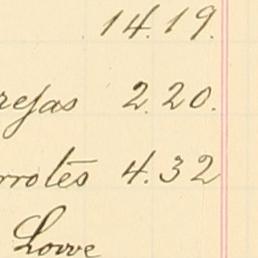 14.19.
rejas 2.20.
rrotes 4.32
Lowe